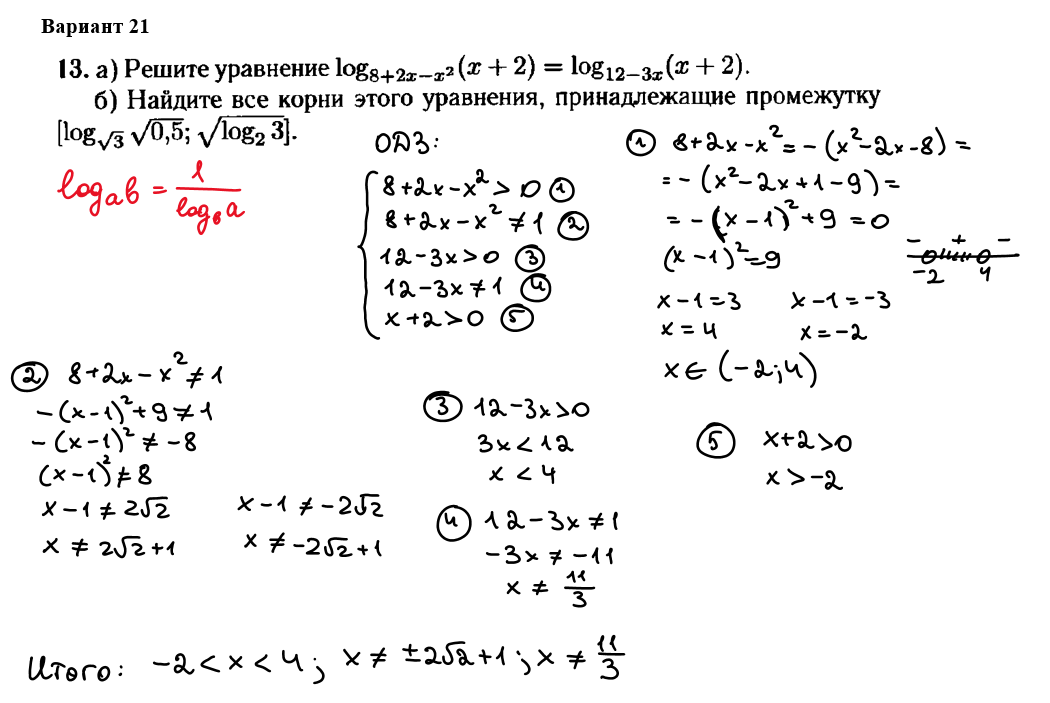 Вариант 21
13. а) Решите уравнение log_{8+2x−x²}(x + 2) = log_{12−3x}(x + 2).
б) Найдите все корни этого уравнения, принадлежащие промежутку
[log_{√3} √0,5; √(log₂ 3)].
log_a b = 1/(log_b a)
ОДЗ:
8+2x−x² > 0 ①
8+2x−x² ≠ 1 ②
12−3x>0 ③
12−3x≠1 ④
x+2>0 ⑤
① 8+2x−x² = −(x²−2x−8) =
= −(x²−2x+1−9) =
= −(x−1)²+9 = 0
(x−1)²=9
− + −
−2 4
x−1=3 x−1=−3
x=4 x=−2
x∈(−2;4)
② 8+2x−x² ≠ 1
−(x−1)²+9 ≠ 1
−(x−1)² ≠ −8
(x−1)² ≠ 8
x−1 ≠ 2√2 x−1 ≠ −2√2
x ≠ 2√2+1 x ≠ −2√2+1
③ 12−3x>0
3x<12
x<4
④ 12−3x≠1
−3x ≠ −11
x ≠ 11/3
⑤ x+2>0
x>−2
Итого: −2<x<4; x≠ ±2√2+1; x≠ 11/3